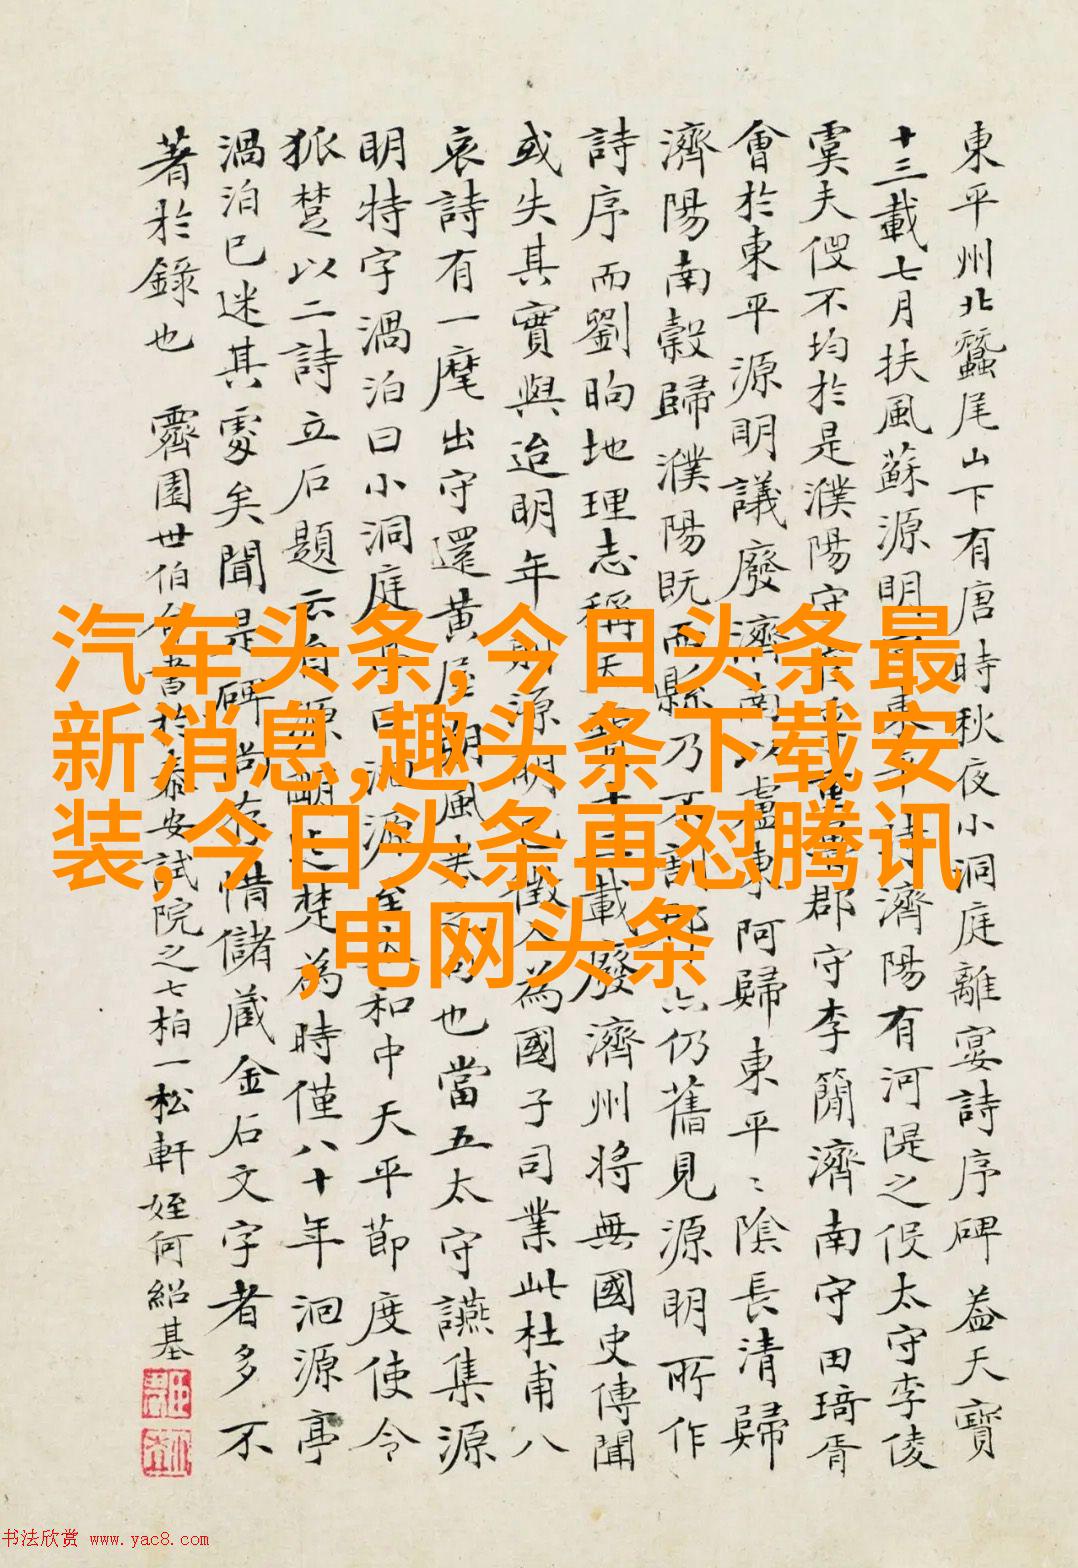 東平州北蠶尾山下有唐時秋夜小洞庭離宴詩序碑 葢天寶
十三載七月扶風蘇源明 東平 詩濟陽有河隄之役太守李倰
虞夫役不均於是濮陽守 郡守李簡濟南守田琦胥
會於東平源明議廢濟南以盧東阿歸東平〻陰長清歸
濟陽南穀歸濮陽既而縣乃不 仍舊見源明所作
詩序而劉昫地理志稱天 十三載廢濟州將無國史傳聞
或失其實與迨明年 源明 徵入為國子司業此杜甫八
哀詩有一麾出守還黃屋朔風 也當五太守讌集源
明特字渦泊曰小洞庭 和中天平節度使令
狐楚以二詩立石題云自源明 楚為時僅八十年洄源亭
渦泊已迷其處矣聞是碑 惜儲蔵金石文字者多不
著於錄也 霽園世伯 書於泰安試院之七柏一松軒 姪何紹基
汽车头条,今日头条最
新消息,趣头条下载安
装,今日头条再怼腾讯
,电网头条
书法欣赏 www.yac8.com